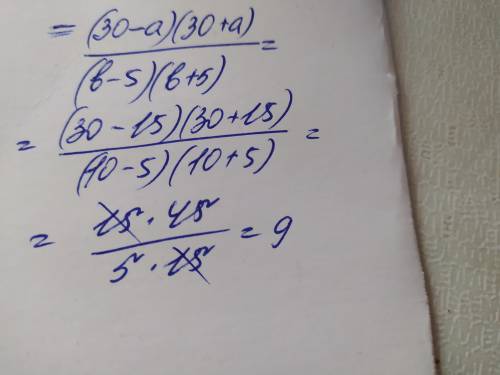 = (30-a)(30+a) / (b-5)(b+5) =
= (30-15)(30+15) / (10-5)(10+5) =
= 15·45 / 5·15 = 9